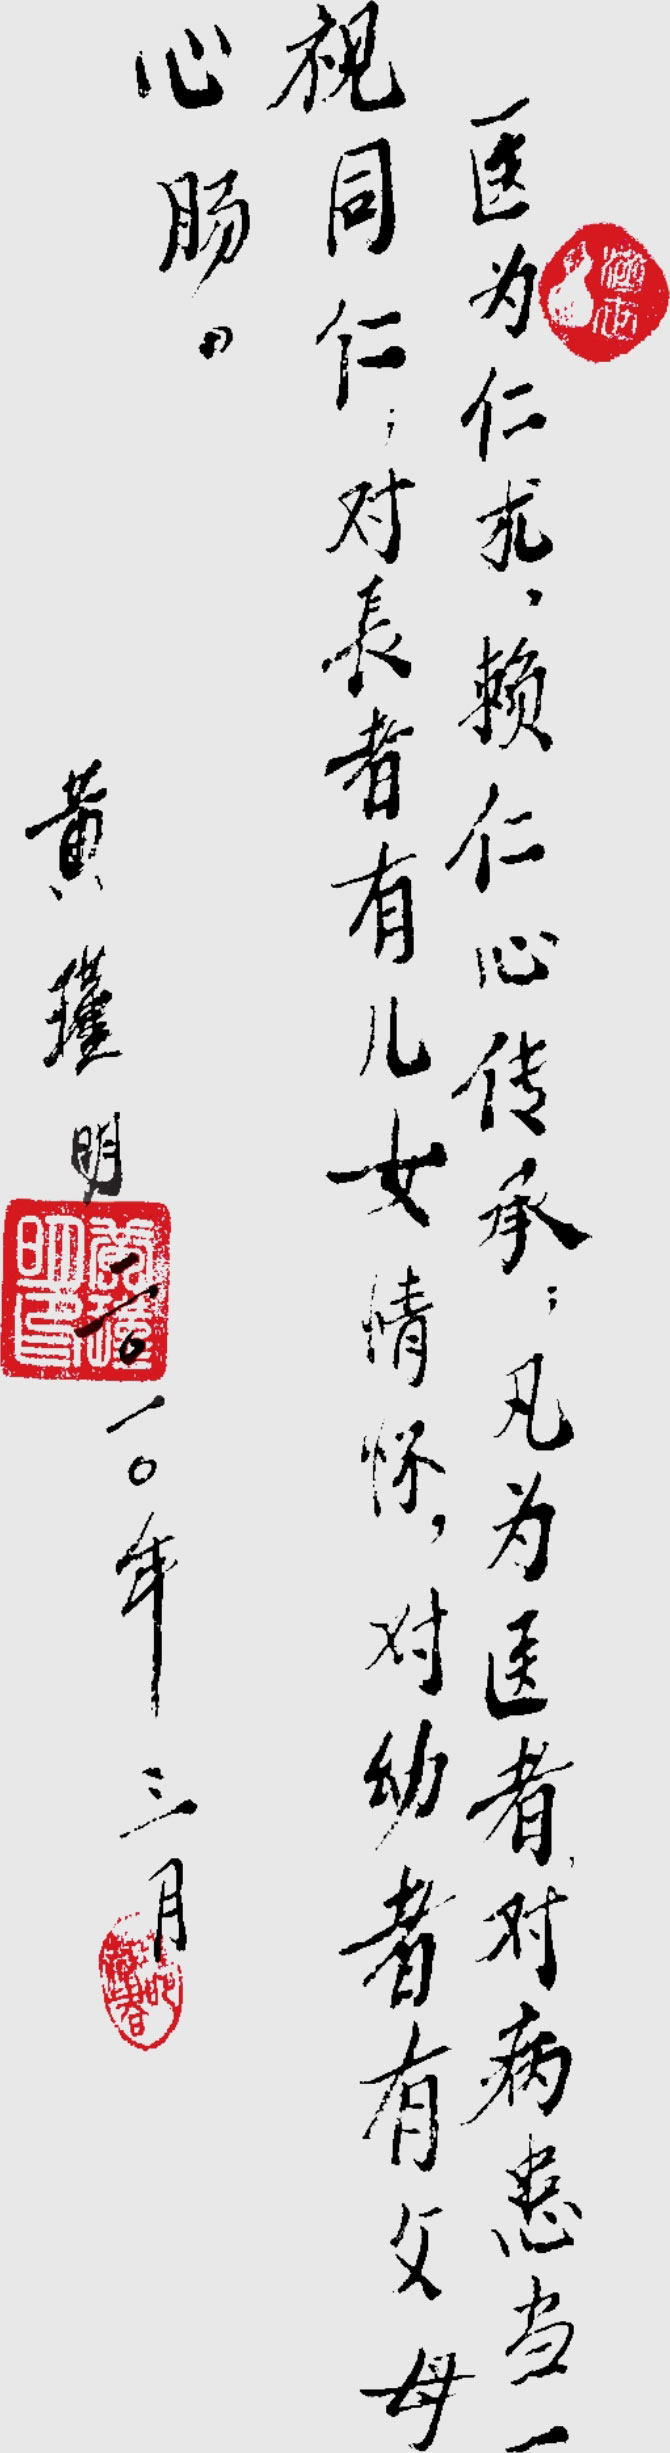 医为仁术，赖仁心传承；凡为医者，对病患当一
视同仁；对長者有儿女情怀，对幼者有父母
心肠。
黄瑾明 二〇一〇年三月
黄瑾明印